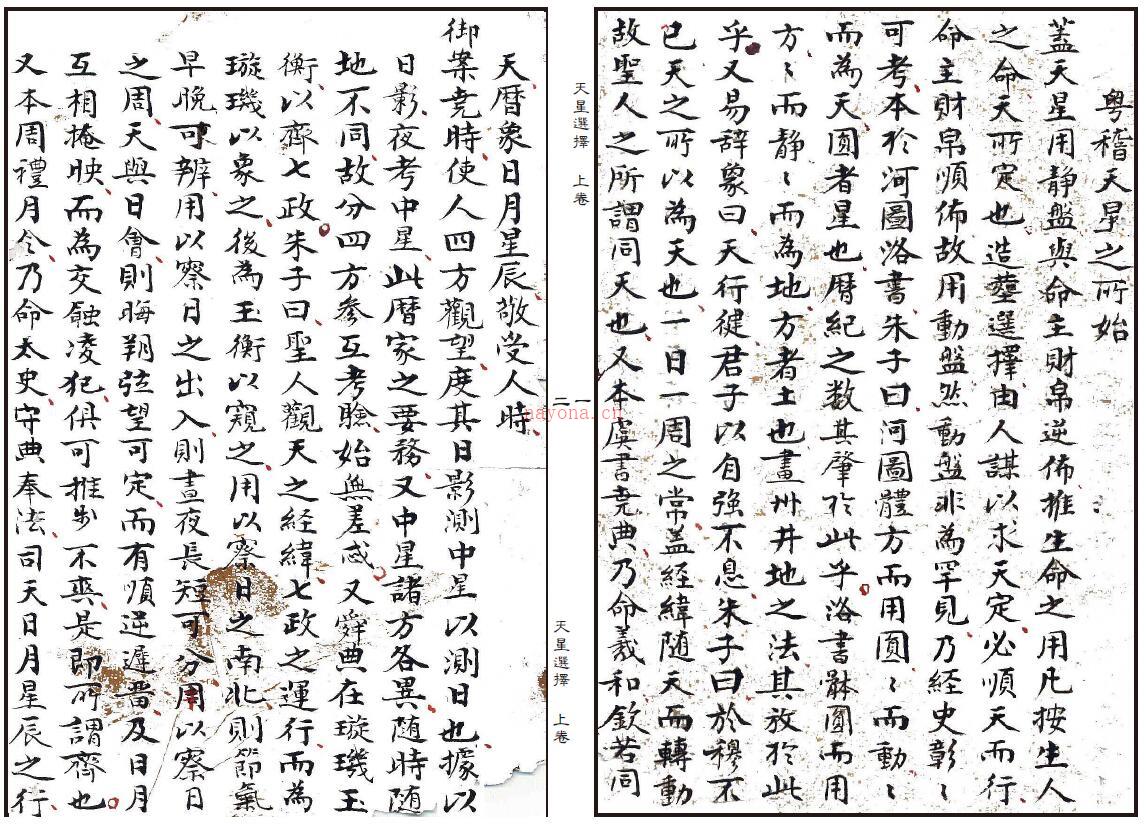 粤稽天星之所始
蓋天星用静盤與命主財帛逆佈推生命之用凡按生人
之命天所定也造塟選擇由人謀以求天定必順天而行
命主財帛順佈故用動盤然動盤非為罕見乃経史彰〻
可考本扵河圖洛書朱子曰河圖體方而用圓〻而動〻
而為天圓者星也暦紀之数其肇扵此乎洛書骵圓而用
方〻而静〻而為地方者土也畫州井地之法其放扵此
乎又易辞象曰天行健君子以自強不息朱子曰於穆不
已天之所以為天也一日一周之常盖經緯随天而轉動
故聖人之所謂同天也又本虞書尭典乃命羲和欽若同
天暦象日月星辰敬受人時
御案尭時使人四方觀望度其日影測中星以測日也據以
日影夜考中星此暦家之要務又中星諸方各異随時随
地不同故分四方參互考驗始無差惑又舜典在璇璣玉
衡以齊七政朱子曰聖人觀天之経緯七政之運行而為
璇璣以象之後為玉衡以窺之用以察日之南北則節氣
早晚可辨用以察日之出入則晝夜長短可分用以察日
之周天與日會則晦朔弦望可定而有順逆遲畱及日月
互相掩映而為交蝕凌犯俱可推步不爽是即所謂齊也
又本周禮月令乃命太史守典奉法司天日月星辰之行
天星選擇 上卷
一
二
天星選擇 上卷
nayona.cn